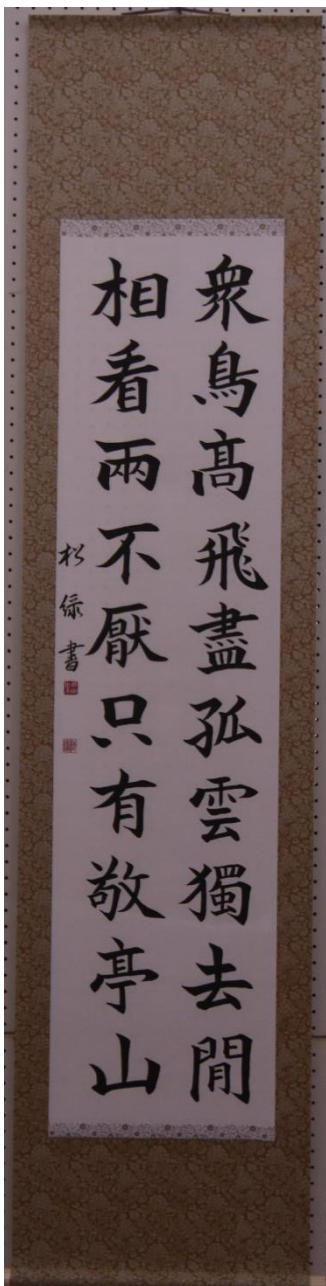 衆鳥髙飛盡孤雲獨去閒
相看兩不厭只有敬亭山
松緑書